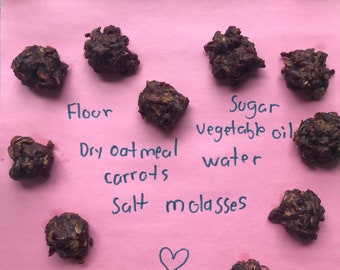 Flour
Sugar
Vegetable oil
Dry oatmeal
water
carrots
Salt molasses